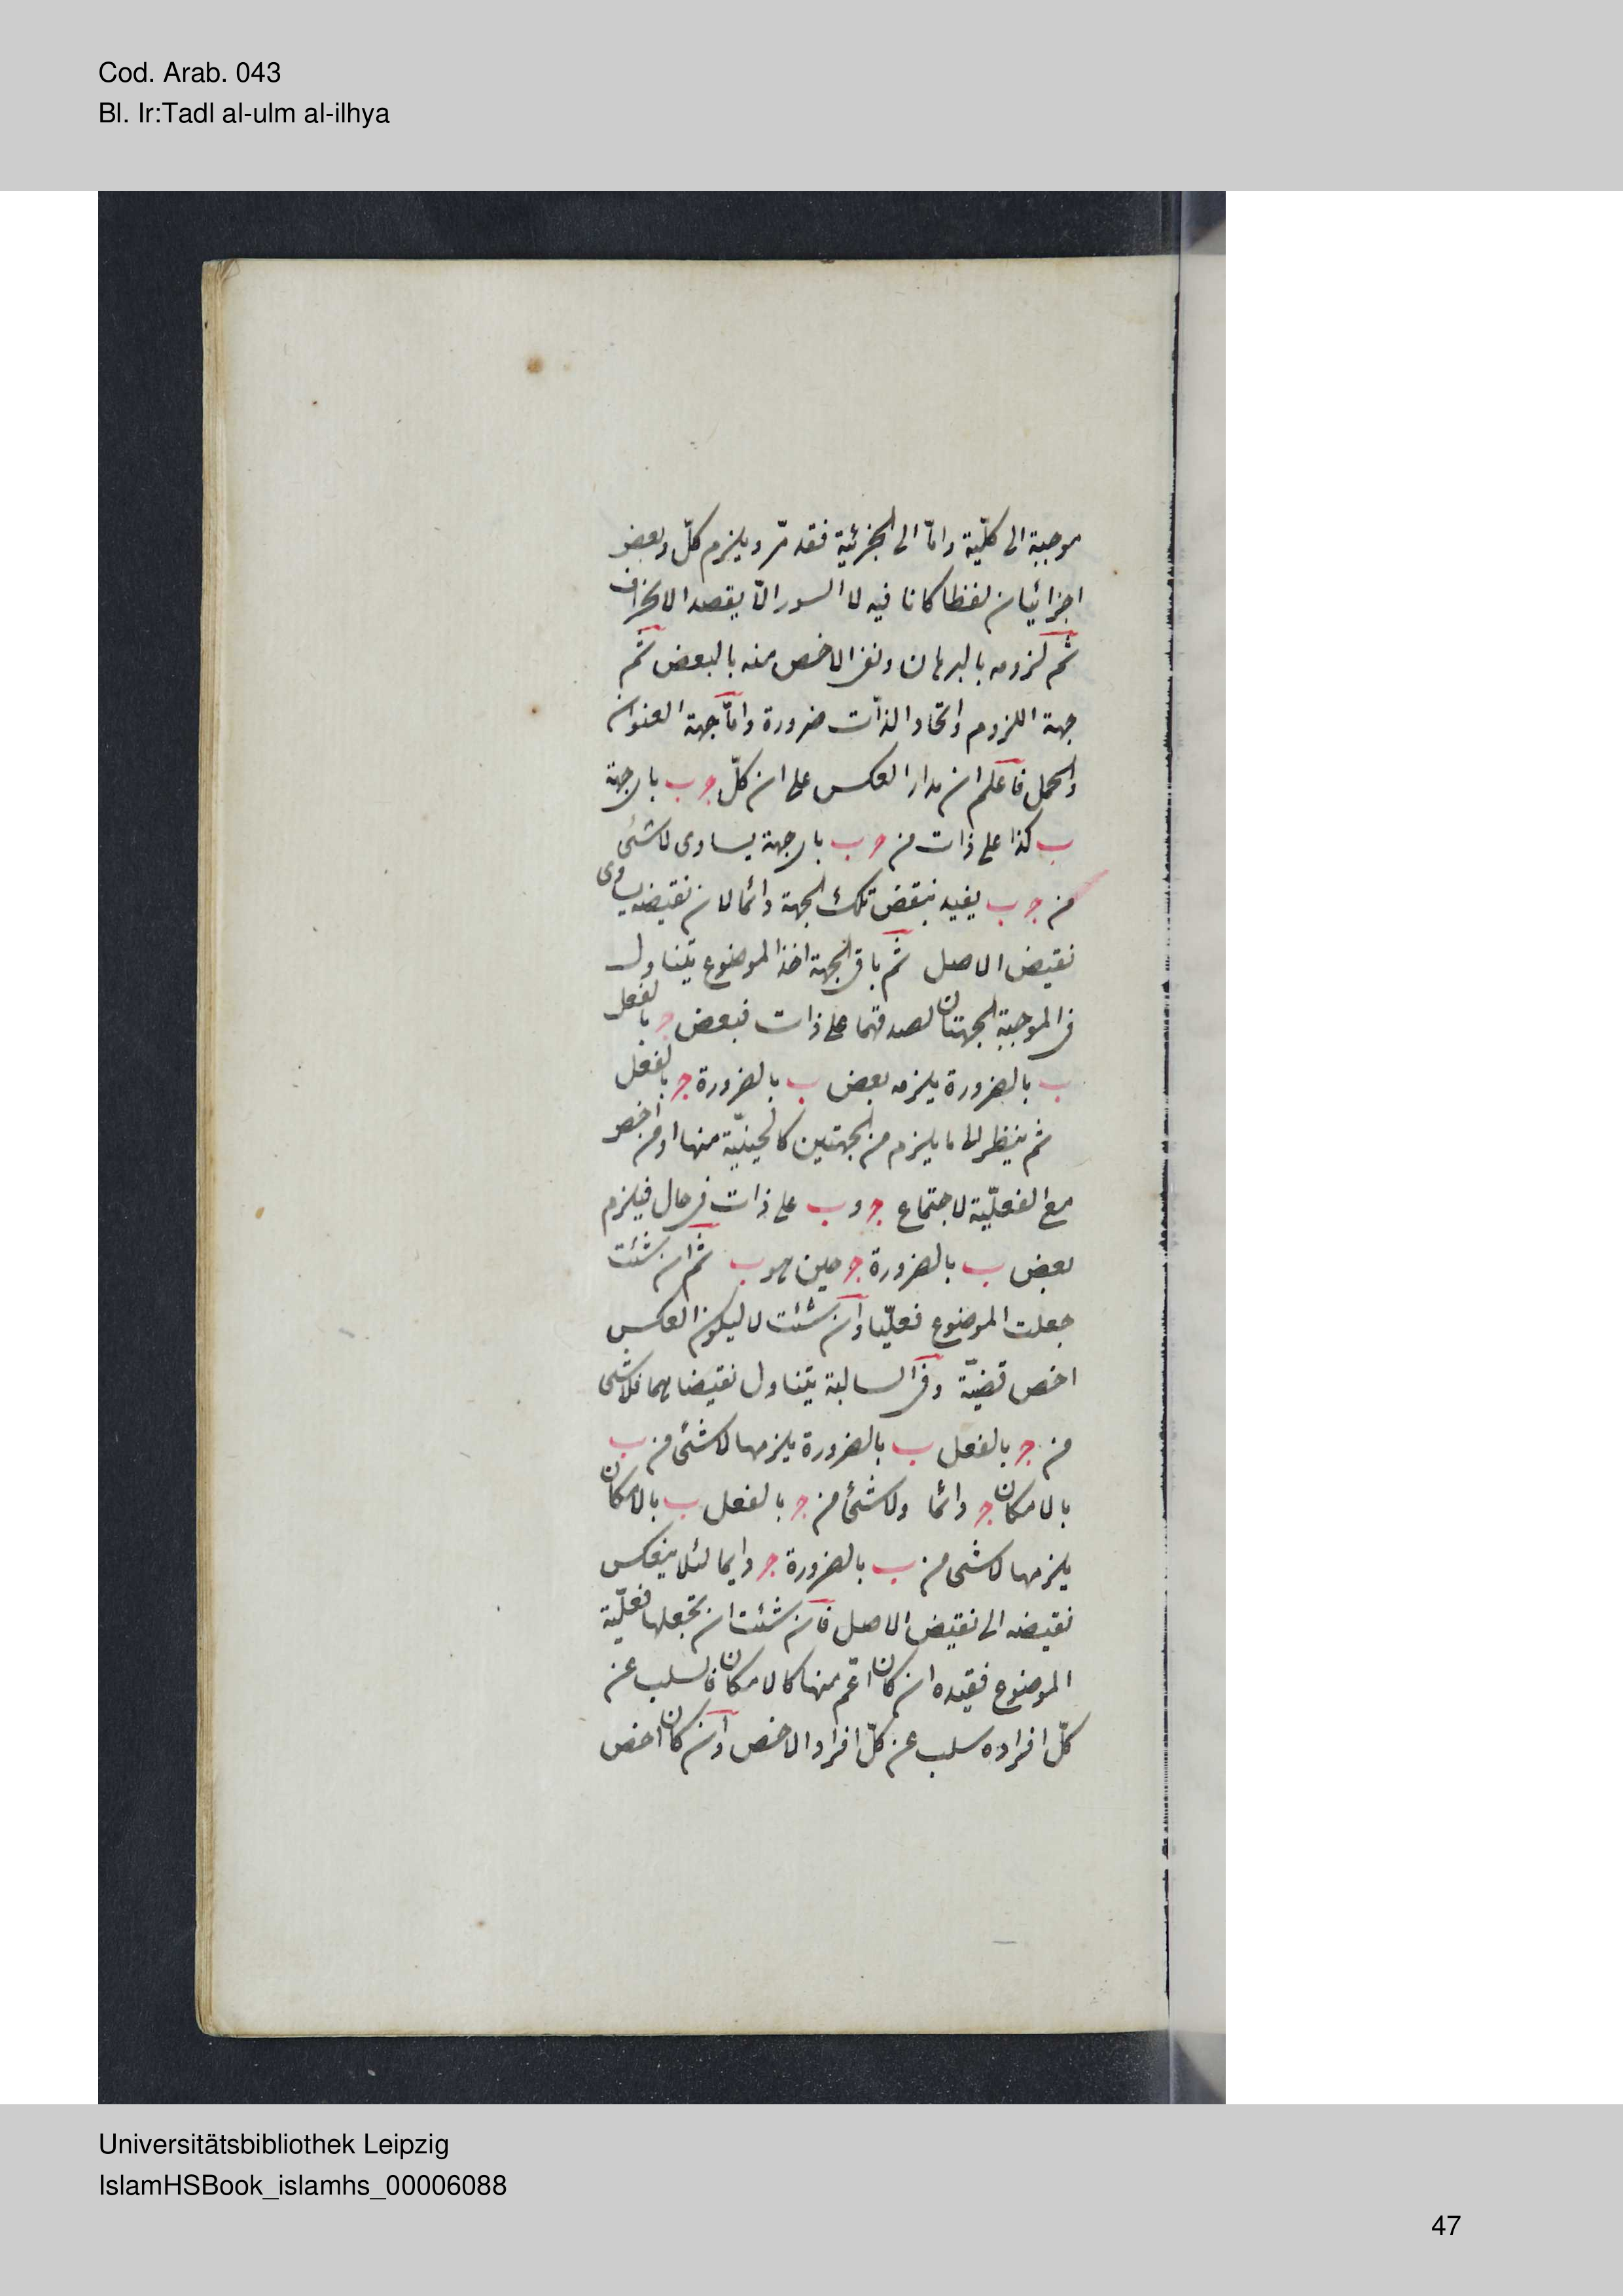 Cod. Arab. 043
Bl. Ir:Tadl al-ulm al-ilhya
موجبة الى كلّية وامّا الى الجزئية فقد مرّ ويلزم كلّ وبعض
اجزائيان لفظا كانا فيه لا السور الّا بقصد الانحراف
ثم لزومه بالبرهان ونفى الاخص منه بالبعض ثم
جهة اللزوم واتحاد الذات ضرورة وامّا جهة العنوان
والحمل فاعلم ان مدار العكس على ان كلّ ج ب باى جهة
ب كذا على ذات من ج ب باى جهة يساوى لا شئ
من ج ب يفيد بنقض تلك الجهة دائما لان نقيضه يساوى
نقيض الاصل ثم باقى الجهة اخذ الموضوع يتناول
فى الموجبة الجهتان لصدقهما على ذات فبعض ج بالفعل
ب بالضرورة يلزمه بعض ب بالضرورة ج بالفعل
ثم ينظر الى ما يلزم من الجهتين كالحينيّة منها او من اخص
مع الفعليّة لاجتماع ج و ب على ذات فى حال فيلزم
بعض ب بالضرورة ج حين هو ب ثم ان شئت
جعلت الموضوع فعليّا وان شئت لا ليكون العكس
اخص قضيّة وفى السالبة يتناول نقيضاهما فلا شئ
من ج بالفعل ب بالضرورة يلزمها لا شئ من ب
بالامكان ج دائما ولا شئ من ج بالفعل ب بالامكان
يلزمها لا شئ من ب بالضرورة ج دايما لئلا ينعكس
نقيضه الى نقيض الاصل فان شئت ان تجعلها فعليّة
الموضوع فقيده ان كان اعم منها كالامكان فالسلب عن
كلّ افراده سلب عن كلّ افراد الاخص وان كان اخص
Universitätsbibliothek Leipzig
IslamHSBook_islamhs_00006088
47